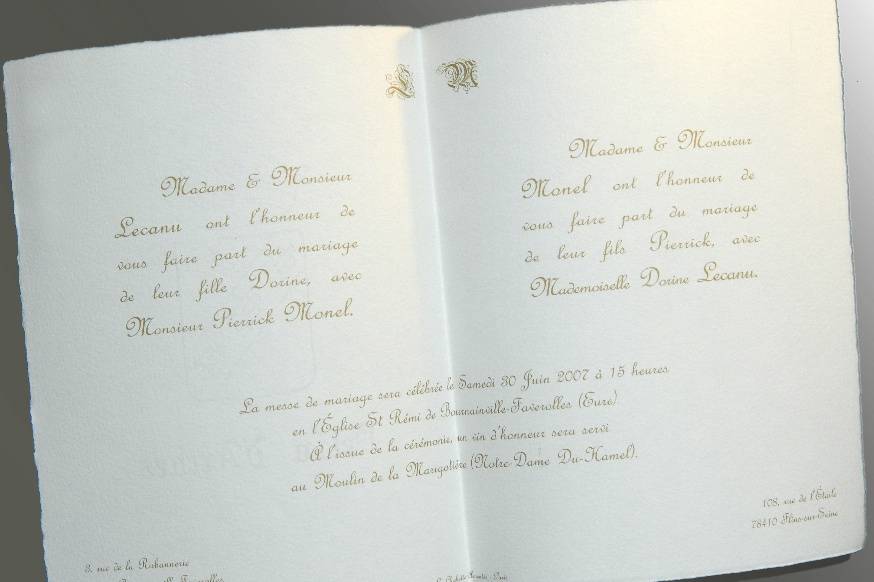 L M
Madame & Monsieur
Lecanu ont l'honneur de
vous faire part du mariage
de leur fille Dorine, avec
Monsieur Pierrick Monel.
Madame & Monsieur
Monel ont l'honneur de
vous faire part du mariage
de leur fils Pierrick, avec
Mademoiselle Dorine Lecanu.
La messe de mariage sera célébrée le Samedi 30 Juin 2007 à 15 heures
en l'Église St Rémi de Bournainville-Faverolles (Eure)
À l'issue de la cérémonie, un vin d'honneur sera servi
au Moulin de la Maugotière (Notre-Dame Du-Hamel).
108, rue de l'Étoile
78410 Flins-sur-Seine
3, rue de la Rabannerie